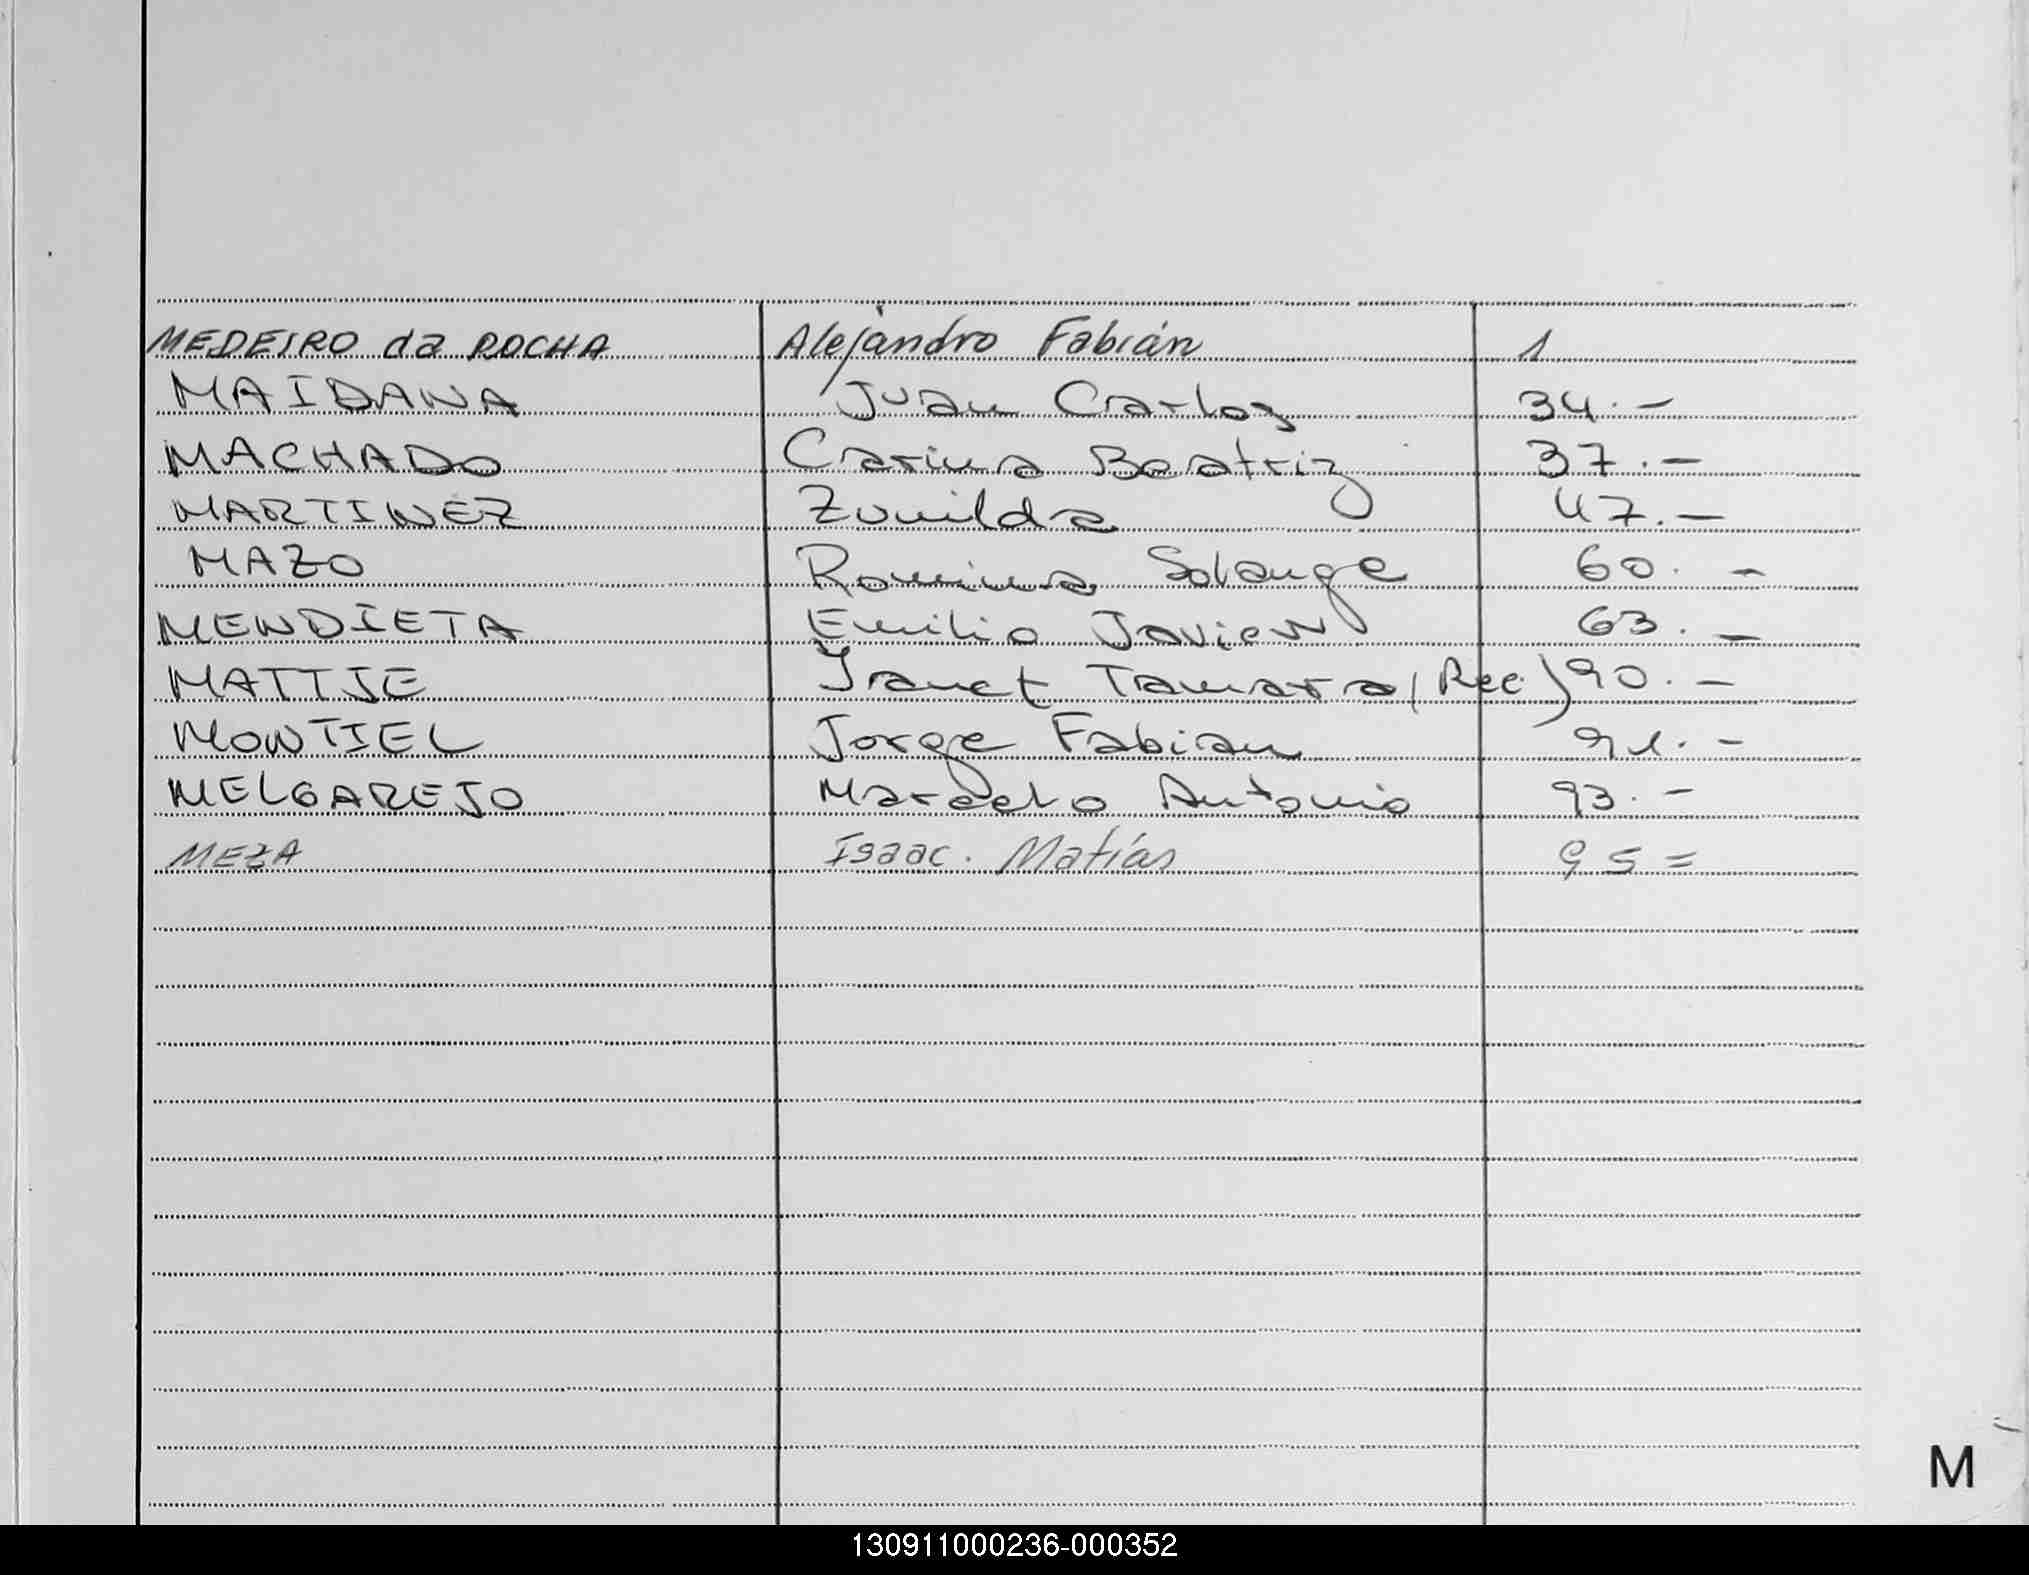 MEDEIRO da ROCHA Alejandro Fabián 1
MAIDANA Juan Carlos 34.-
MACHADO Carina Beatriz 37.-
MARTINEZ Zunilda 47.-
MAZO Romina Solange 60. -
MENDIETA Emilio Javier 63. -
MATTJE Yanet Tamara (Rec.) 90. -
MONTIEL Jorge Fabian 91. -
MELGAREJO Marcelo Antonio 93. -
MEZA Isaac. Matías 95 =
M
130911000236-000352